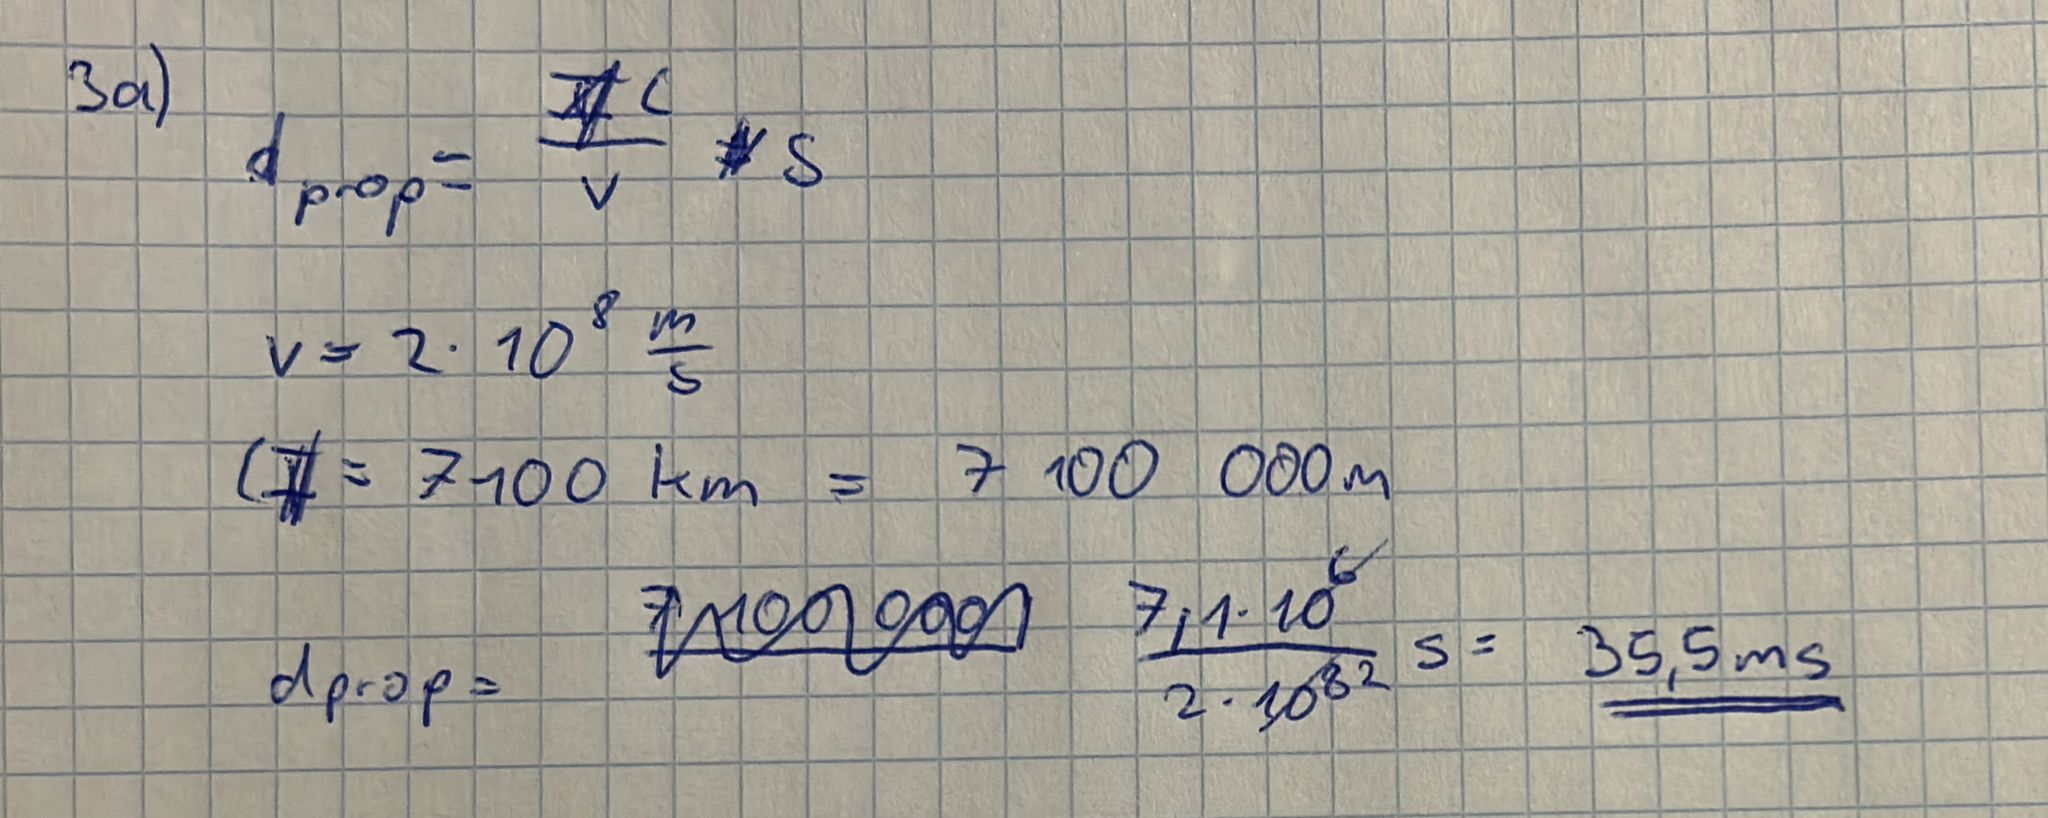 3a)
d prop = C / v S
v = 2 · 10⁸ m/s
C = 7100 km = 7 100 000 m
d prop = 7 100 000 7,1 · 10⁶ / 2 · 10⁸ ² s = 35,5 ms